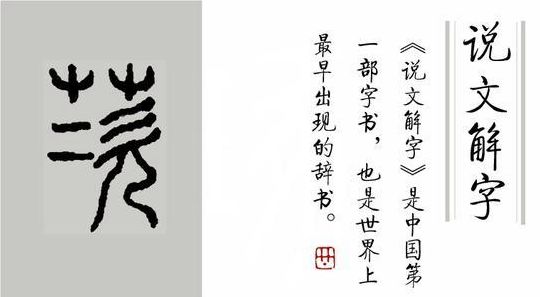 说文解字
《说文解字》是中国第
一部字书，也是世界上
最早出现的辞书。
茨